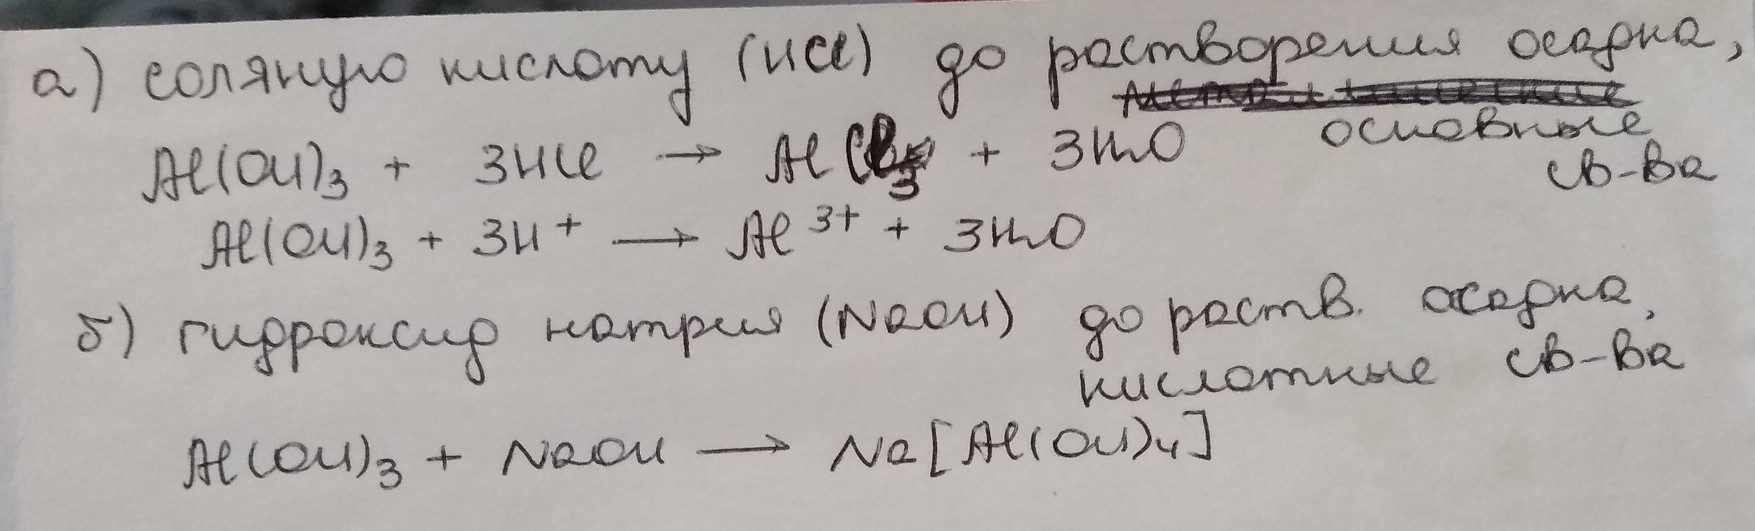 а) соляную кислоту (HCl) до растворения осадка,
основные
св-ва
Al(OH)3 + 3HCl → AlCl3 + 3H2O
Al(OH)3 + 3H+ → Al3+ + 3H2O
б) гидроксид натрия (NaOH) до раств. осадка,
кислотные св-ва
Al(OH)3 + NaOH → Na[Al(OH)4]